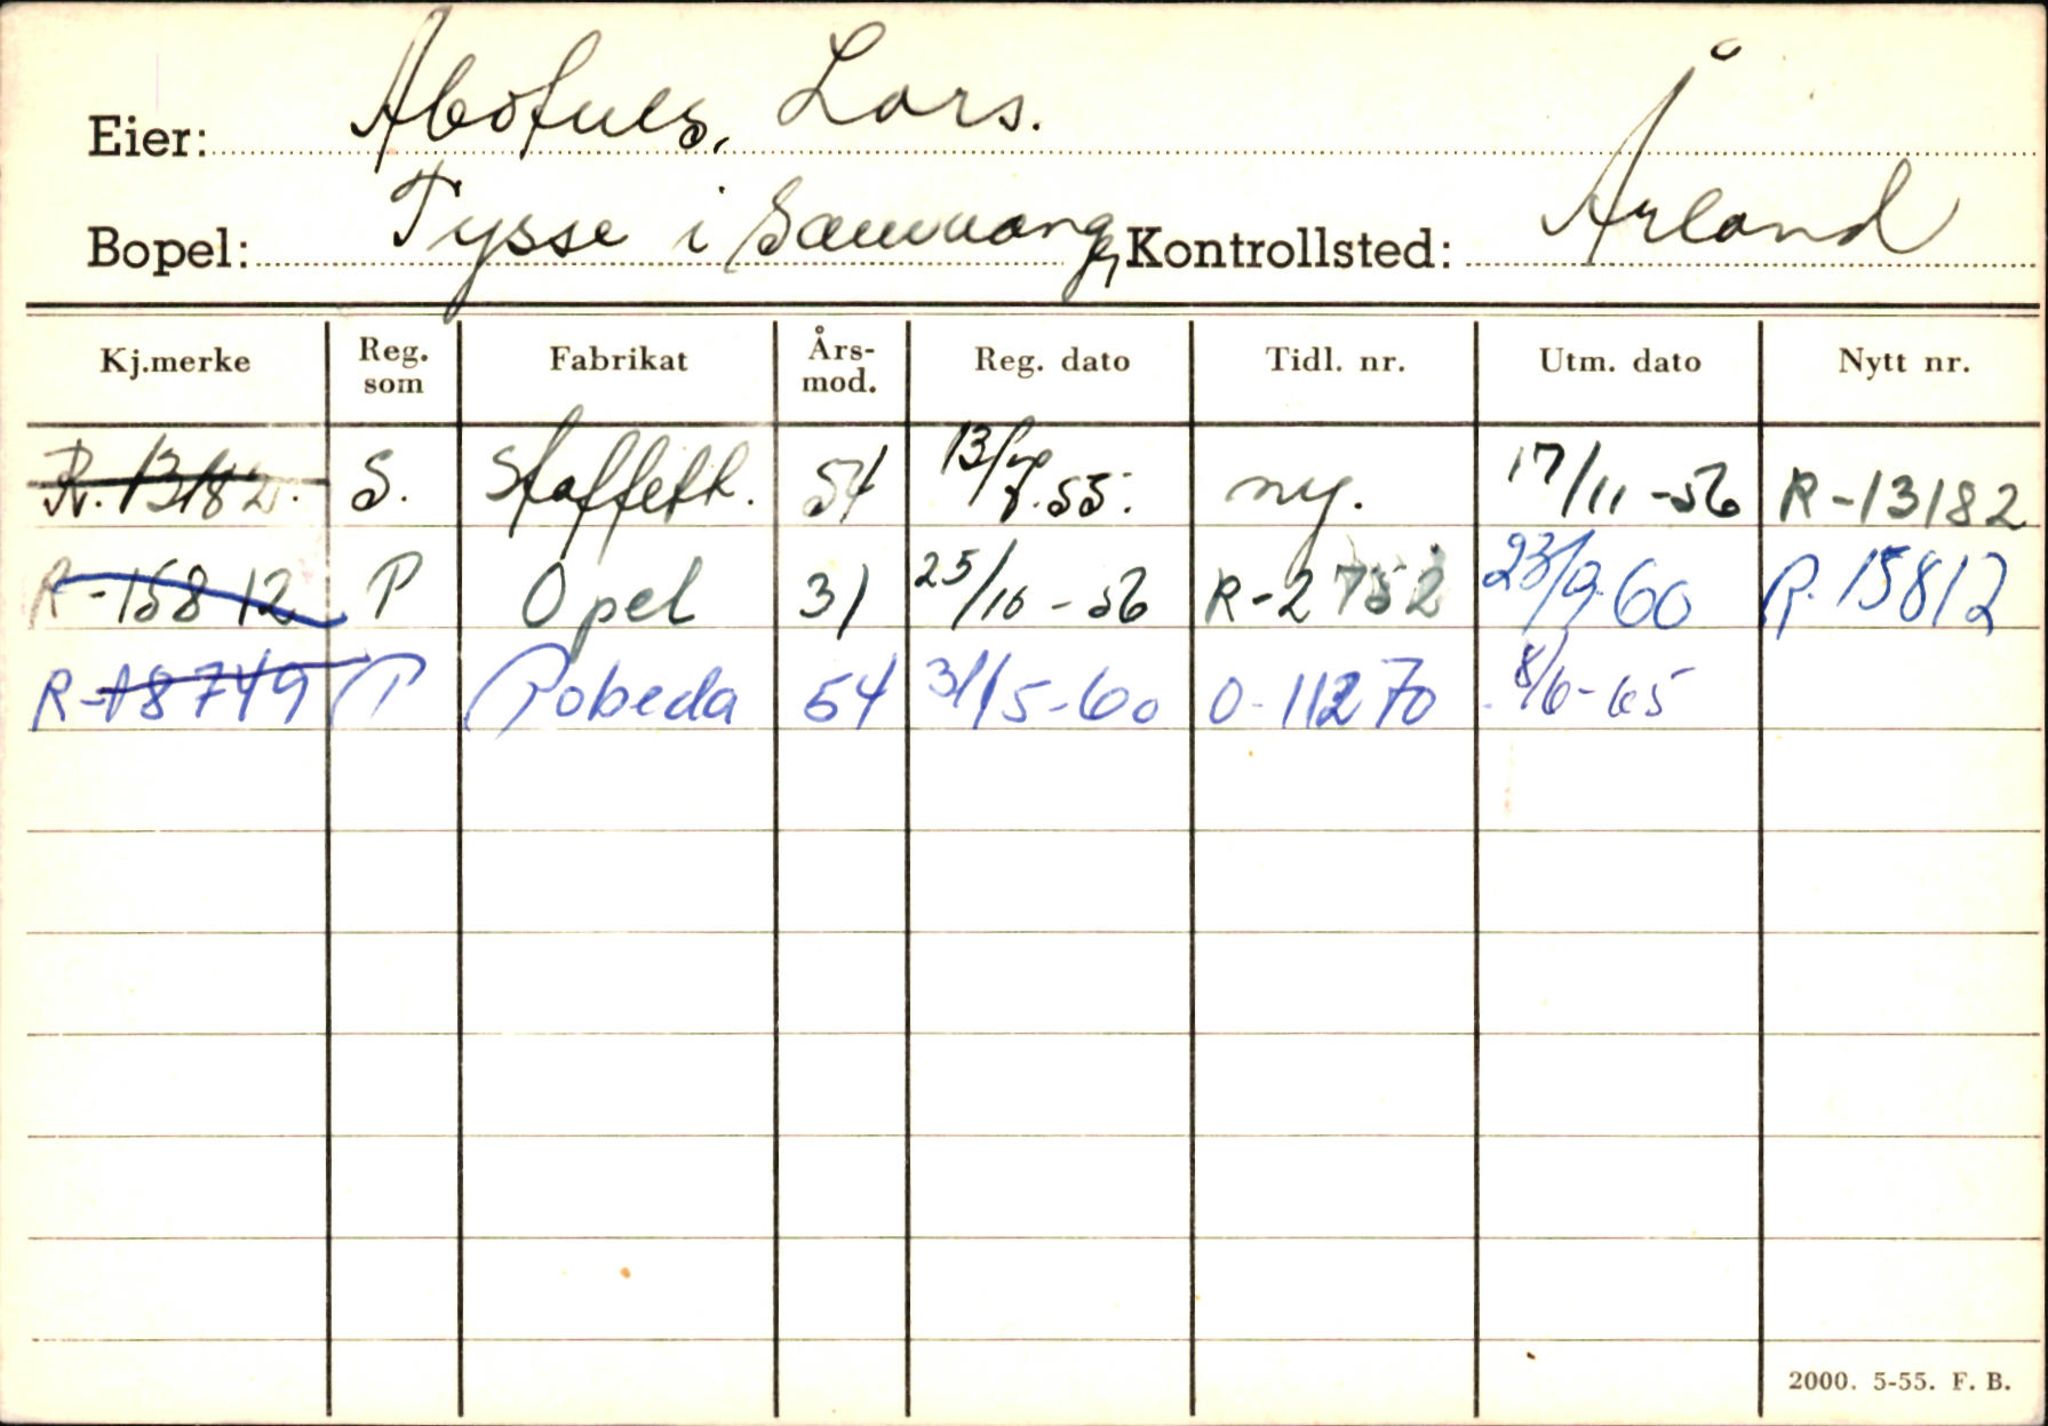 Eier: Lars.
Bopel: Tysse i Samnanger Kontrollsted: Årland
Kj.merke Reg. som Fabrikat Års-mod. Reg. dato Tidl. nr. Utm. dato Nytt nr.
R. 13182. S. Staffett. 54 ny. 17/11-56 R-13182
R-15812 P Opel 31 25/10-56 R-2752 23/9.60 R. 15812
R-18749 P Pobeda 54 31/5-60 O-11270 8/6-65
2000. 5-55. F. B.